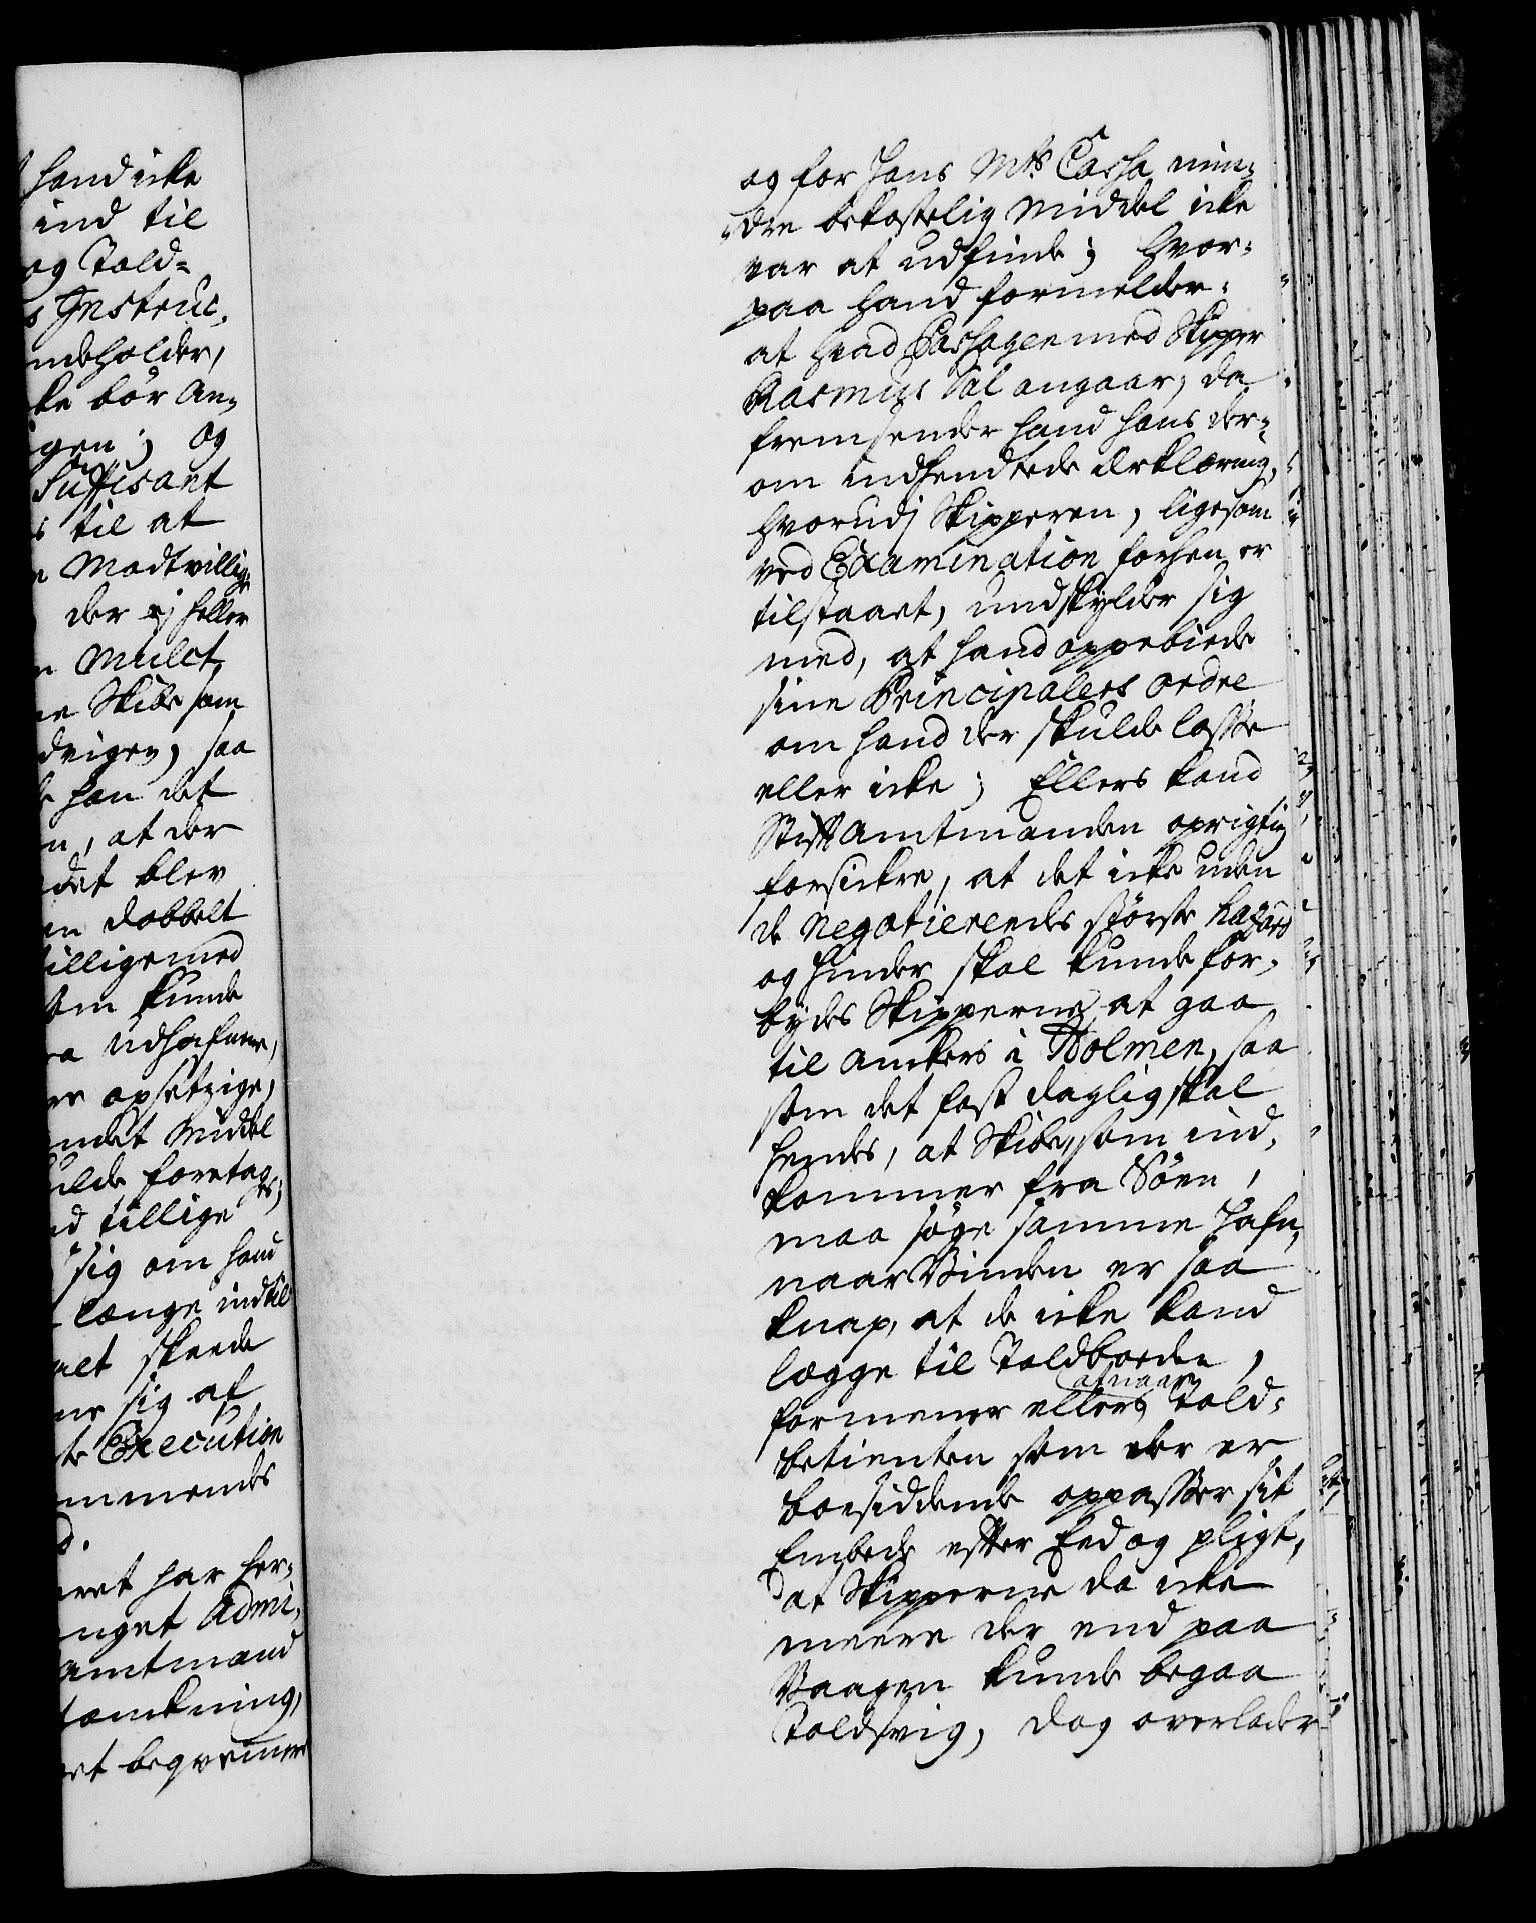 hand icke
ind til
og Told=
s Instruc,
ndeholder,
ke bör An,
gen; og
Suffisant
s til at
n Modtvillig,
der ej heller
n Mulct,
ne Skibe som
dvigen, saa
han det
n, at der
det blev
en dobbelt
tilligemed
om kunde
ra udhafnene,
re opsetzige,
ndet Middel
ulde foretages,
d tillige
sig om hand
længe indtil
alt skeede
ne sig af
te Execution
mmendes
d.
ret har her=
nget Admi,
Amtmand
tænkning,
et beqvemme
og for Hans Mts Cassa min,
dre bekostelig Middel icke
var at udfinde; Hvor=
paa hand formelder:
at hvad Passagen med Skipper
Rasmus Sal angaar, da
fremsender hand hans der=
om indhendtede Erklæring,
hvorudj Skipperen, ligesom
ved Examination forhen er
tilstaaet, undskylder sig
med, at hand oppebiede
sine Principalers ordre
om hand der skulde losse
eller icke; Ellers kand
Stift Amtmanden oprigtig
forsickre, at det icke uden
de Negotierendes störste hazard
og hinder skal kunde for,
bydes Skipperne at gaa
til anckers i Dolmen, saa
som det fast daglig skal
hendes, at Skibe, som ind,
kommer fra Söen,
maa söge samme Hafn,
naar Vinden er saa
knap, at de icke kand
lægge til Toldboden,
formener ellers at naar Told=
betienten som der er
boesiddende oppasser sit
Embede efter Eed og pligt,
at Skipperne da icke
meere der end paa
Vaagen kunde begaa
Toldsvig, dog overlader